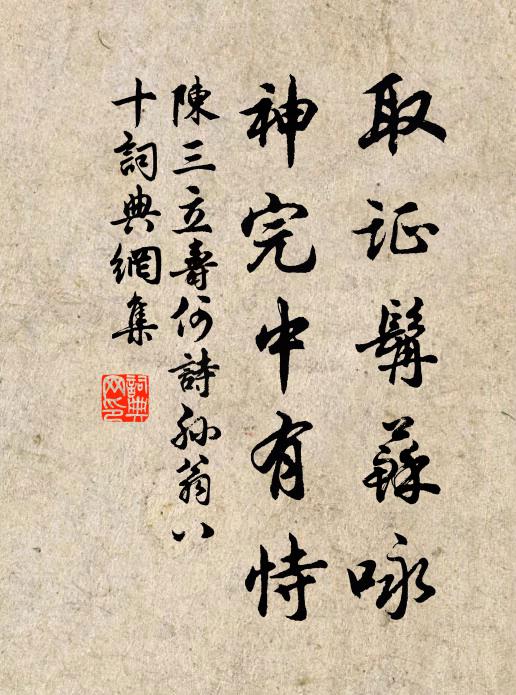 取证髯蘇咏
神完中有恃
陳三立壽何詩孙翁八
十詞典網集
詞典
网印